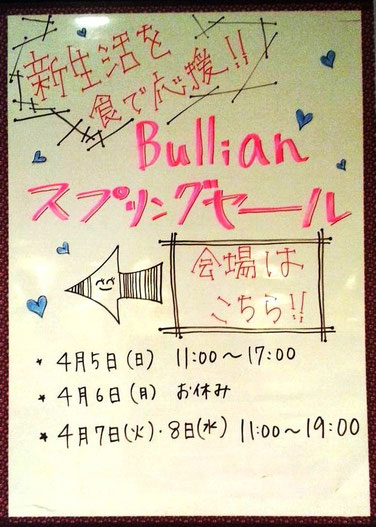 新生活を
食で応援!!
Bullian
スプリングセール
会場は
こちら!!
★ 4月5日(日) 11:00〜17:00
★ 4月6日(月) お休み
★ 4月7日(火)・8日(水) 11:00〜19:00